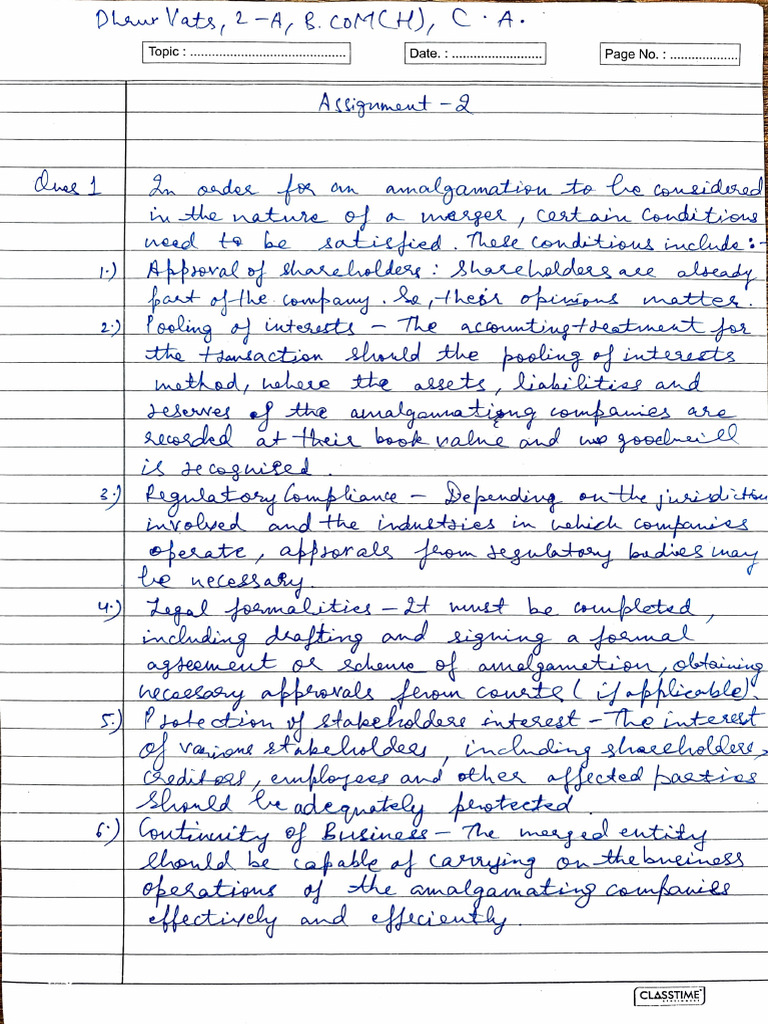 Dhruv Vats, 2-A, B.COM(H), C.A.
Topic : ........................................ Date. : ......................... Page No. : ...................
Assignment - 2
Ques 1 In order for an amalgamation to be considered
in the nature of a merger, certain conditions
need to be satisfied. These conditions include :-
1.) Approval of shareholders : Shareholders are already
part of the company. So, their opinions matter.
2.) Pooling of interests - The accounting treatment for
the transaction should the pooling of interests
method, where the assets, liabilities and
reserves of the amalgamationg companies are
recorded at their book value and no goodwill
is recognised.
3.) Regulatory Compliance - Depending on the jurisdiction
involved and the industries in which companies
operate, approvals from regulatory bodies may
be necessary.
4.) Legal formalities - It must be completed,
including drafting and signing a formal
agreement or scheme of amalgamation, obtaining
necessary approvals from courts (if applicable).
5.) Protection of stakeholders interest - The interest
of various stakeholders, including shareholders,
creditors, employees and other affected parties
should be adequately protected.
6.) Continuity of Business - The merged entity
should be capable of carrying on the business
operations of the amalgamating companies
effectively and effeciently.
CLASSTIME